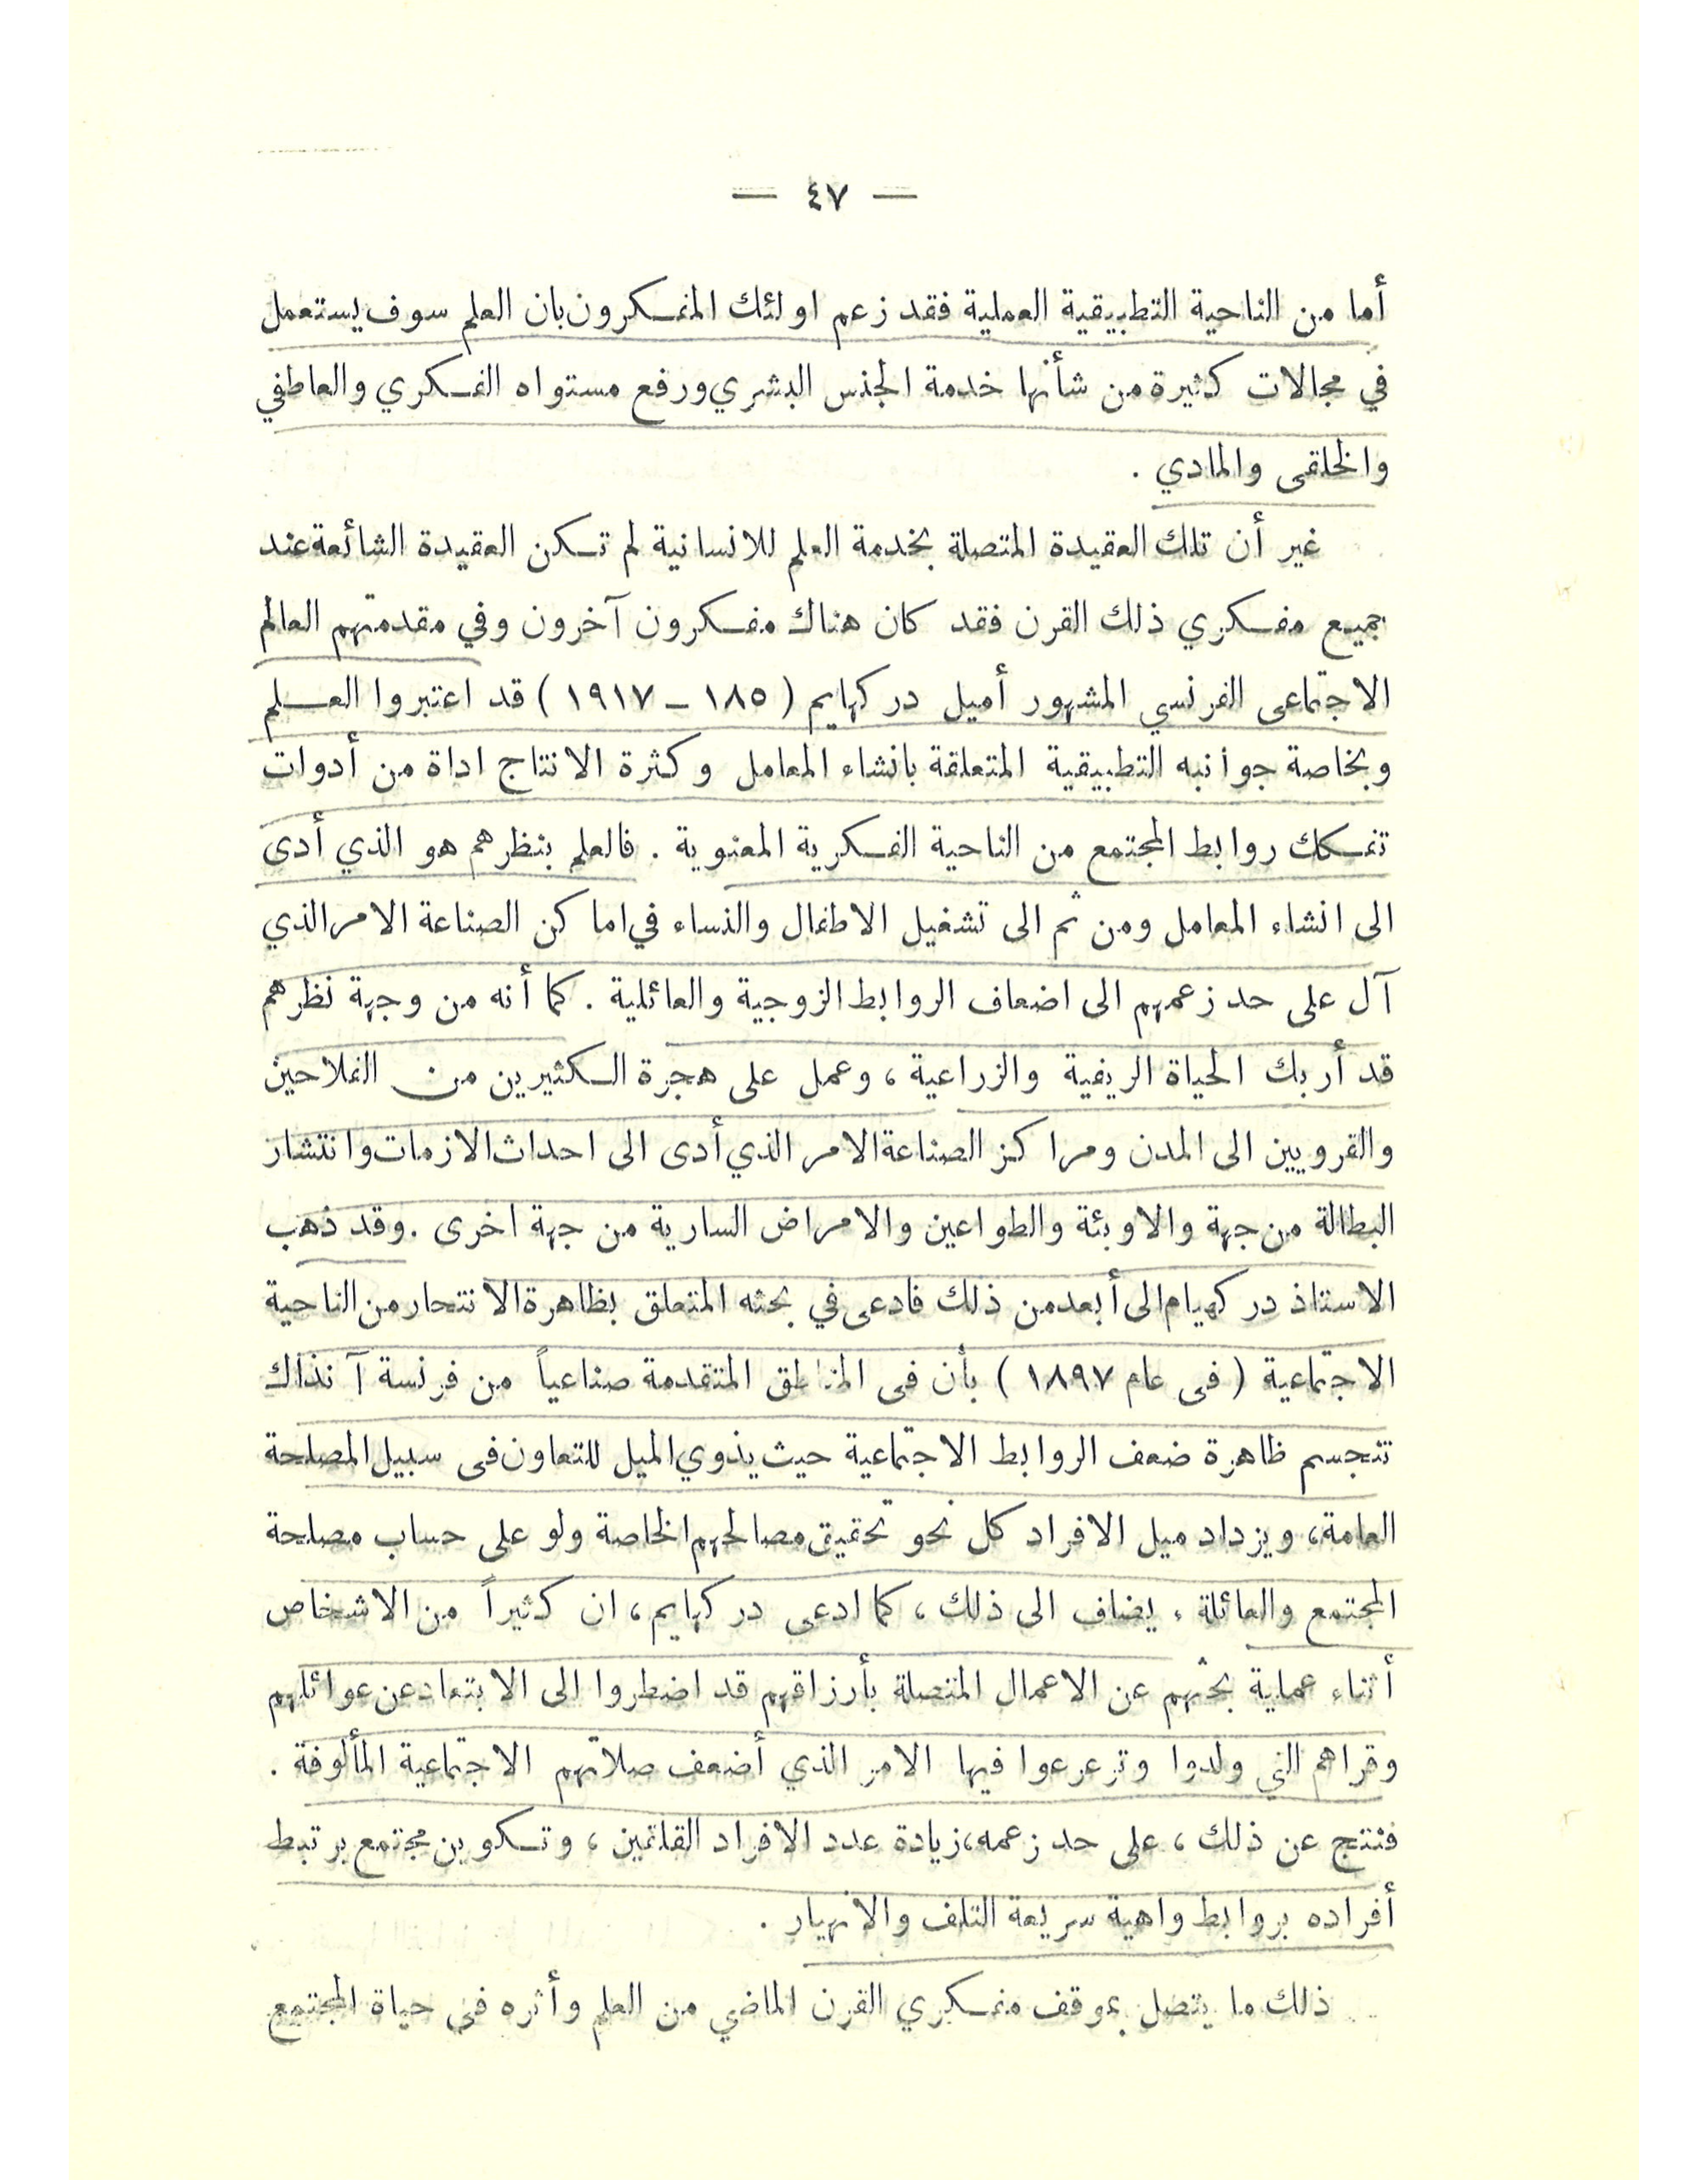 — ٤٧ —
أما من الناحية التطبيقية العملية فقد زعم اولئك المفكرون بان العلم سوف يستعمل
في مجالات كثيرة من شأنها خدمة الجنس البشري ورفع مستواه الفكري والعاطفي
والخلقى والمادي .
غير أن تلك العقيدة المتصلة بخدمة العلم للانسانية لم تكن العقيدة الشائعة عند
جميع مفكري ذلك القرن فقد كان هناك مفكرون آخرون وفي مقدمتهم العالم
الاجتماعى الفرنسي المشهور أميل دركهايم ( ١٨٥ – ١٩١٧ ) قد اعتبروا العلم
وبخاصة جوانبه التطبيقية المتعلقة بانشاء المعامل وكثرة الانتاج اداة من أدوات
تفكك روابط المجتمع من الناحية الفكرية المعنوية . فالعلم بنظرهم هو الذي أدى
الى انشاء المعامل ومن ثم الى تشغيل الاطفال والنساء في اماكن الصناعة الامر الذي
آل على حد زعمهم الى اضعاف الروابط الزوجية والعائلية . كما أنه من وجهة نظرهم
قد أربك الحياة الريفية والزراعية ، وعمل على هجرة الكثيرين من الفلاحين
والقرويين الى المدن ومراكز الصناعة الامر الذي أدى الى احداث الازمات وانتشار
البطالة من جهة والاوبئة والطواعين والامراض السارية من جهة اخرى . وقد ذهب
الاستاذ دركهيام الى أبعد من ذلك فادعى في بحثه المتعلق بظاهرة الانتحار من الناحية
الاجتماعية ( فى عام ١٨٩٧ ) بأن فى المناطق المتقدمة صناعياً من فرنسة آنذاك
تتجسم ظاهرة ضعف الروابط الاجتماعية حيث يذوي الميل للتعاون فى سبيل المصلحة
العامة ، ويزداد ميل الافراد كل نحو تحقيق مصالحهم الخاصة ولو على حساب مصلحة
المجتمع والعائلة . يضاف الى ذلك ، كما ادعى دركهايم ، ان كثيراً من الاشخاص
أثناء عملية بحثهم عن الاعمال المتصلة بأرزاقهم قد اضطروا الى الابتعاد عن عوائلهم
وقراهم التي ولدوا وترعرعوا فيها الامر الذي أضعف صلاتهم الاجتماعية المألوفة .
فنتج عن ذلك ، على حد زعمه ، زيادة عدد الافراد القلقين ، وتكوين مجتمع يرتبط
أفراده بروابط واهية سريعة التلف والانهيار .
ذلك ما يتصل بموقف مفكري القرن الماضي من العلم وأثره فى حياة المجتمع